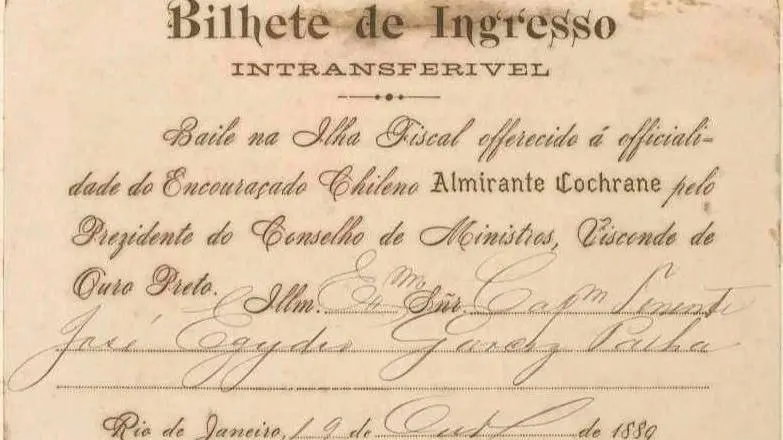 Bilhete de Ingresso
INTRANSFERIVEL
Baile na Ilha Fiscal offerecido á officiali-
dade do Encouraçado Chileno Almirante Cochrane pelo
Prezidente do Conselho de Ministros, Visconde de
Ouro Preto. Illm. Exm. Sñr. Capm Tenente
José Egydio Garcez Palha
Rio de Janeiro, 19 de Out de 1889